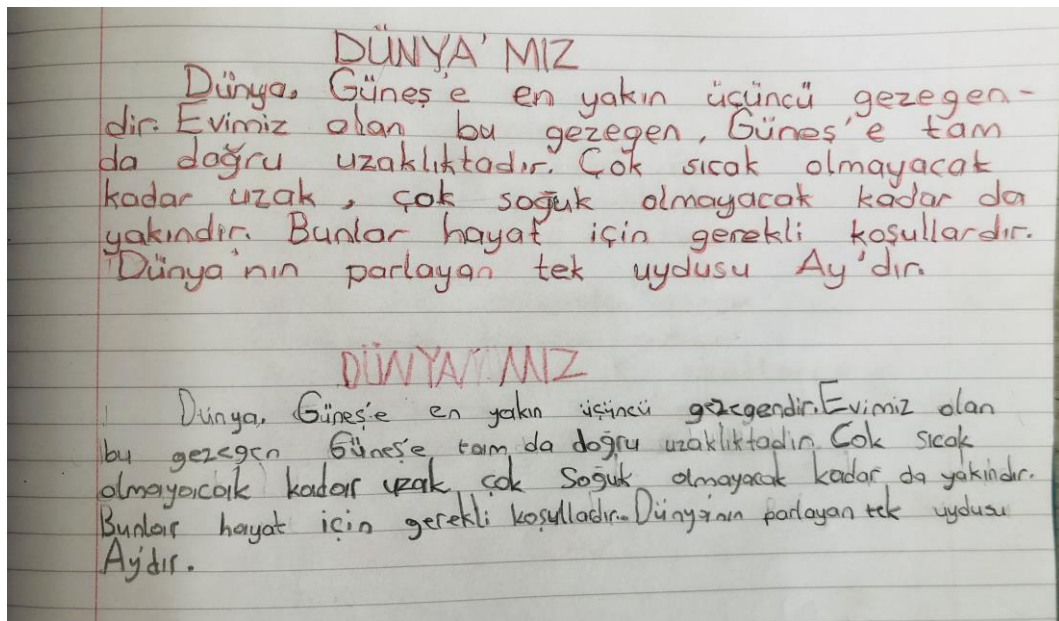 DÜNYA'MIZ
Dünya, Güneş'e en yakın üçüncü gezegen-
dir. Evimiz olan bu gezegen, Güneş'e tam
da doğru uzaklıktadır. Çok sıcak olmayacak
kadar uzak, çok soğuk olmayacak kadar da
yakındır. Bunlar hayat için gerekli koşullardır.
Dünya'nın parlayan tek uydusu Ay'dır.
DÜNYAMIZ
Dünya, Güneş'e en yakın üçüncü gezegendir. Evimiz olan
bu gezegen Güneş'e tam da doğru uzaklıktadır. Çok sıcak
olmayacak kadar uzak, çok soğuk olmayacak kadar da yakındır.
Bunlar hayat için gerekli koşulladır. Dünya'nın parlayan tek uydusu
Ay'dır.